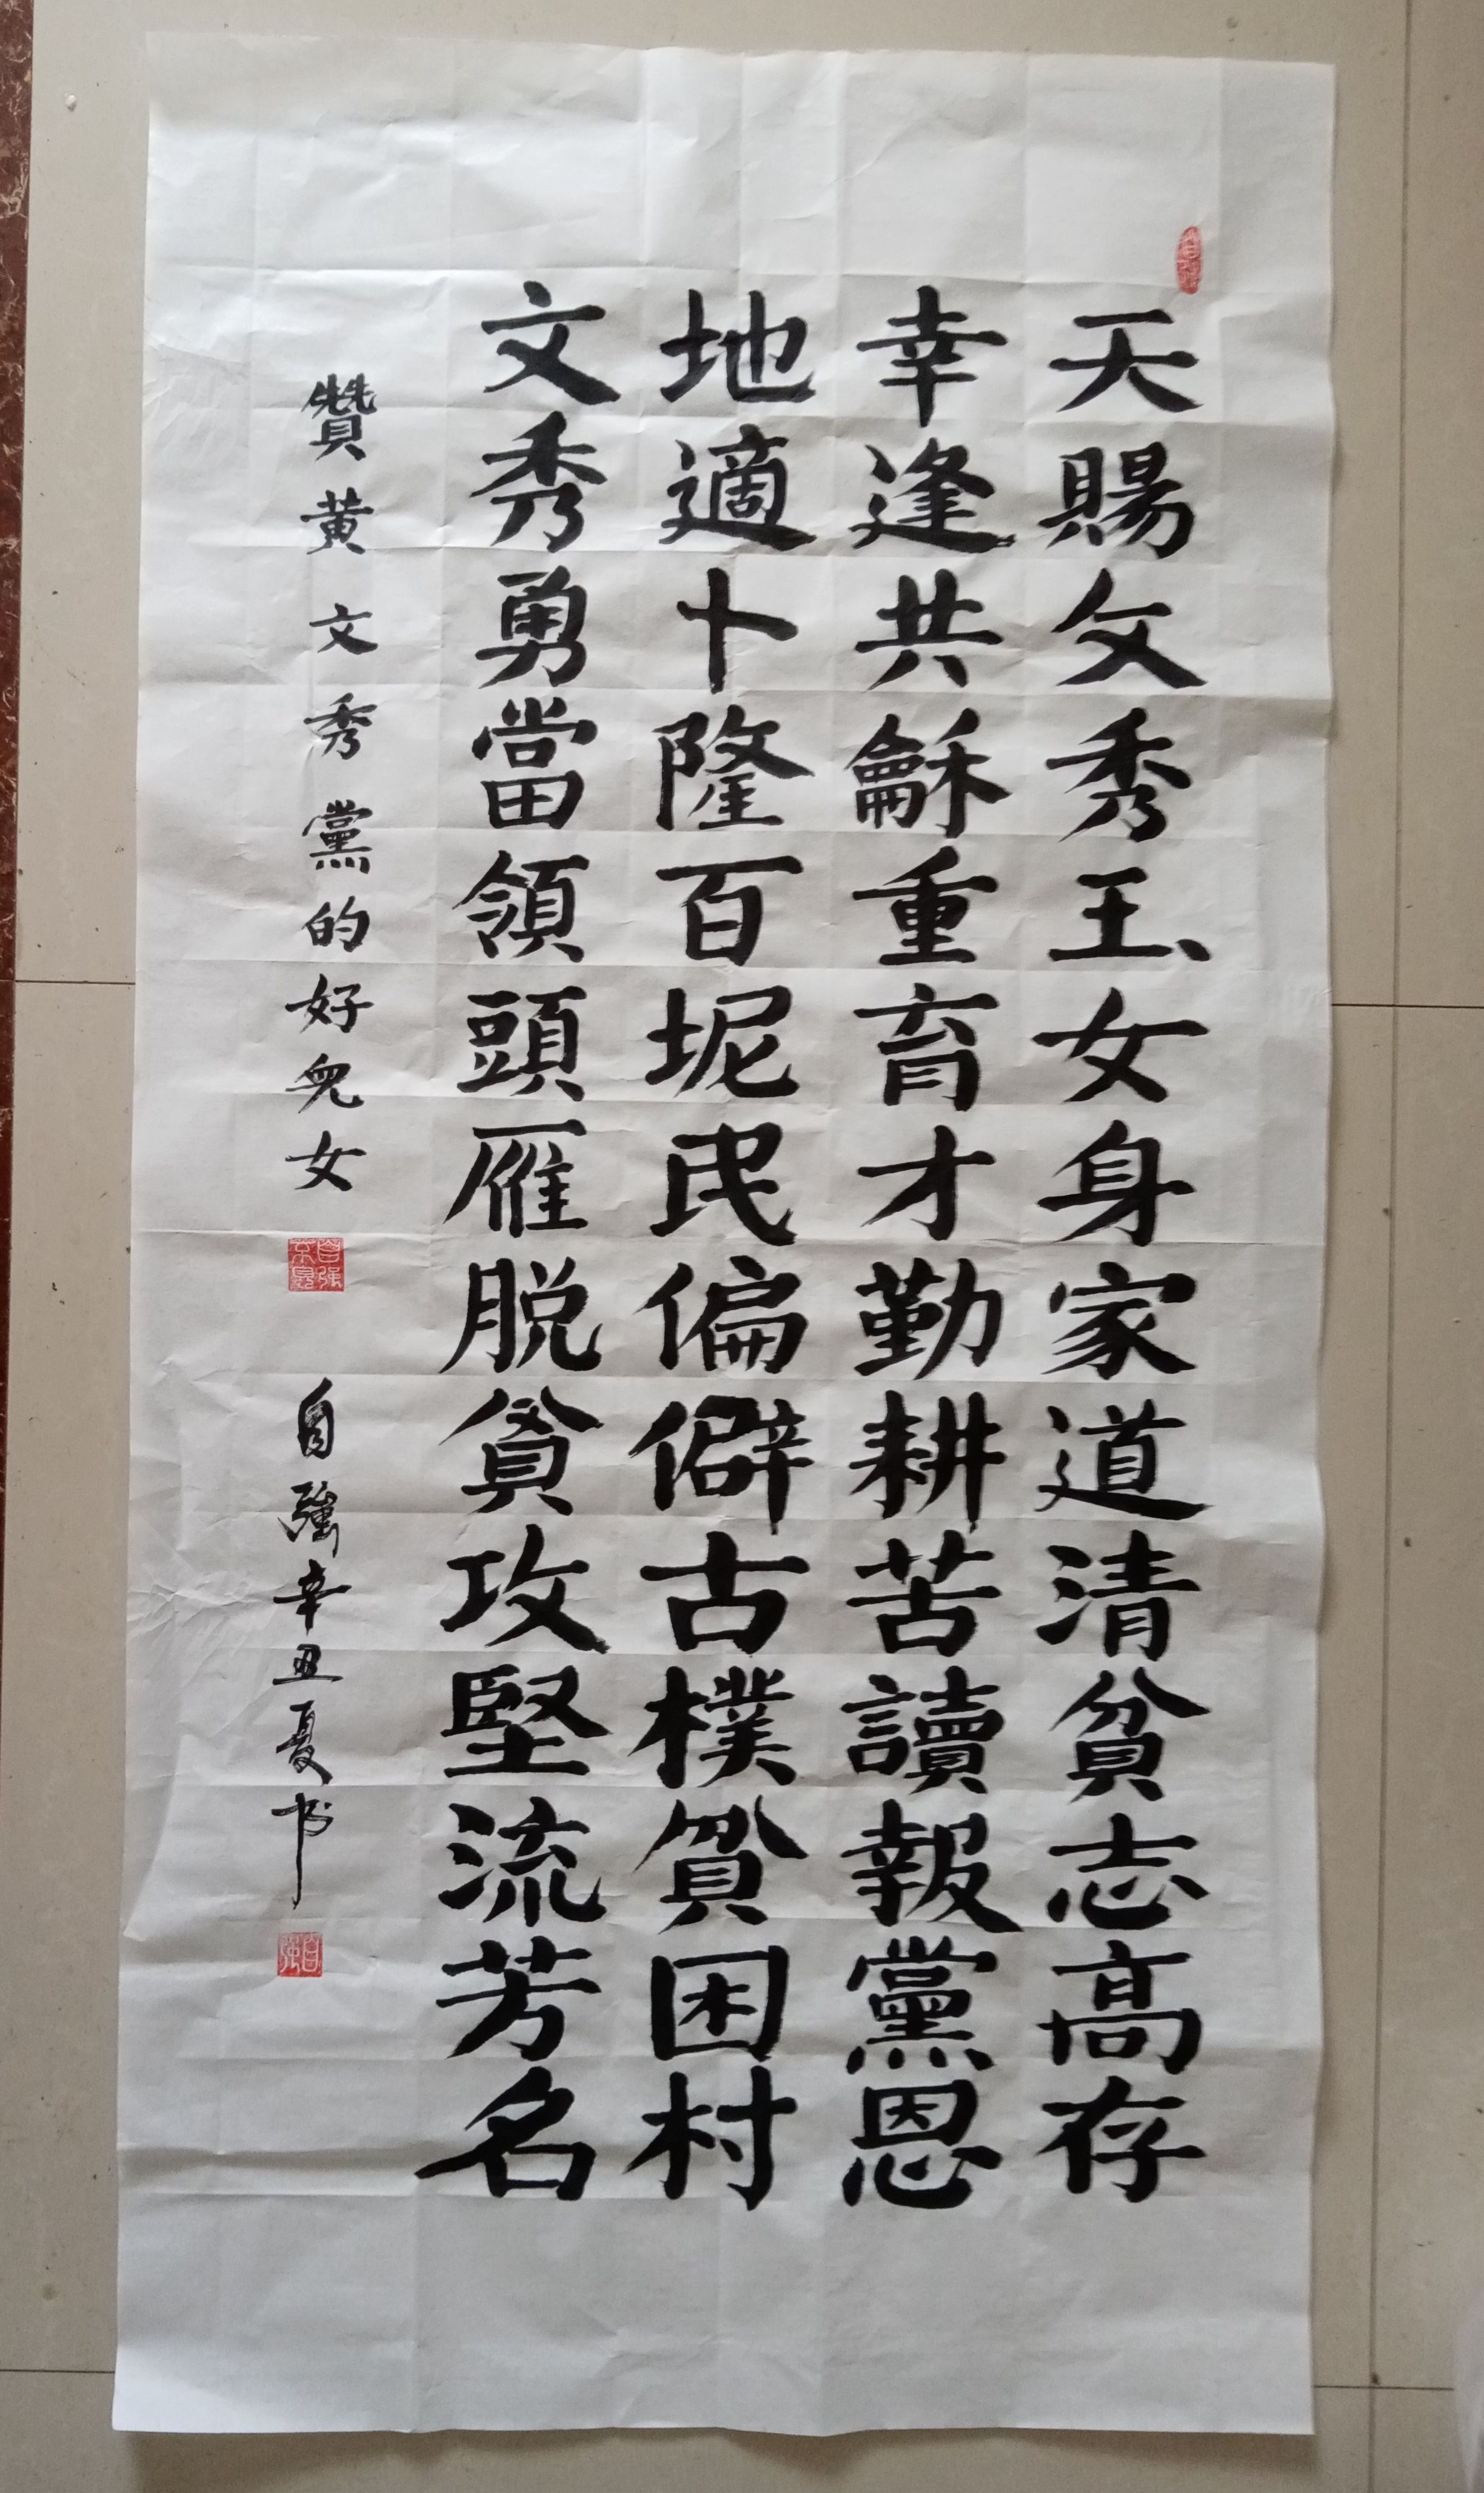 天賜文秀玉女身家道清貧志高存
幸逢共龢重育才勤耕苦讀報黨恩
地適卜隆百坭屯偏僻古樸貧困村
文秀勇當領頭雁脱貧攻堅流芳名
贊黄文秀黨的好兒女
自強辛丑夏书